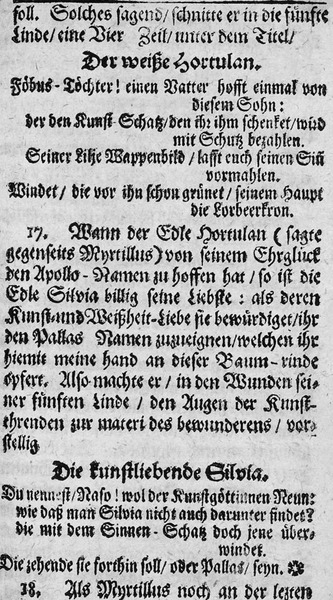 soll. Solches sagend/ schnitte er in die fünfte
Linde/ eine Vier Zeil/ unter dem Titel/
Der weiße Hortulan.
Föbus-Töchter! einen Vatter hofft einmal von
diesem Sohn:
der den Kunst-Schatz/ den ihr ihm schenket/ wird
mit Schutz bezahlen.
Seiner Lilje Wappenbild/ lasst euch seinen Sin̄
vormahlen.
Windet/ die vor ihn schon grünet/ seinem Haupt
die Lorbeerkron.
17. Wann der Edle Hortulan (sagte
gegenseits Myrtillus) von seinem Ehrglück
den Apollo-Namen zu hoffen hat/ so ist die
Edle Silvia billig seine Liebste: als deren
Kunst und Weißheit-Liebe sie bewürdiget/ ihr
den Pallas Namen zuzueignen/ welchen ihr
hiemit meine hand an dieser Baum-rinde
opfert. Also machte er/ in den Wunden sei-
ner fünften Linde/ den Augen der Kunst-
ehrenden zur materi des bewunderens/ vor-
stellig
Die kunstliebende Silvia.
Du nennest/ Naso! wol der Kunstgöttinnen Neun:
wie daß man Silvia nicht auch darunter findet?
die mit dem Sinnen-Schatz doch jene über-
windet.
Die zehende sie forthin soll/ oder Pallas/ seyn.
18. Als Myrtillus noch an der lezten